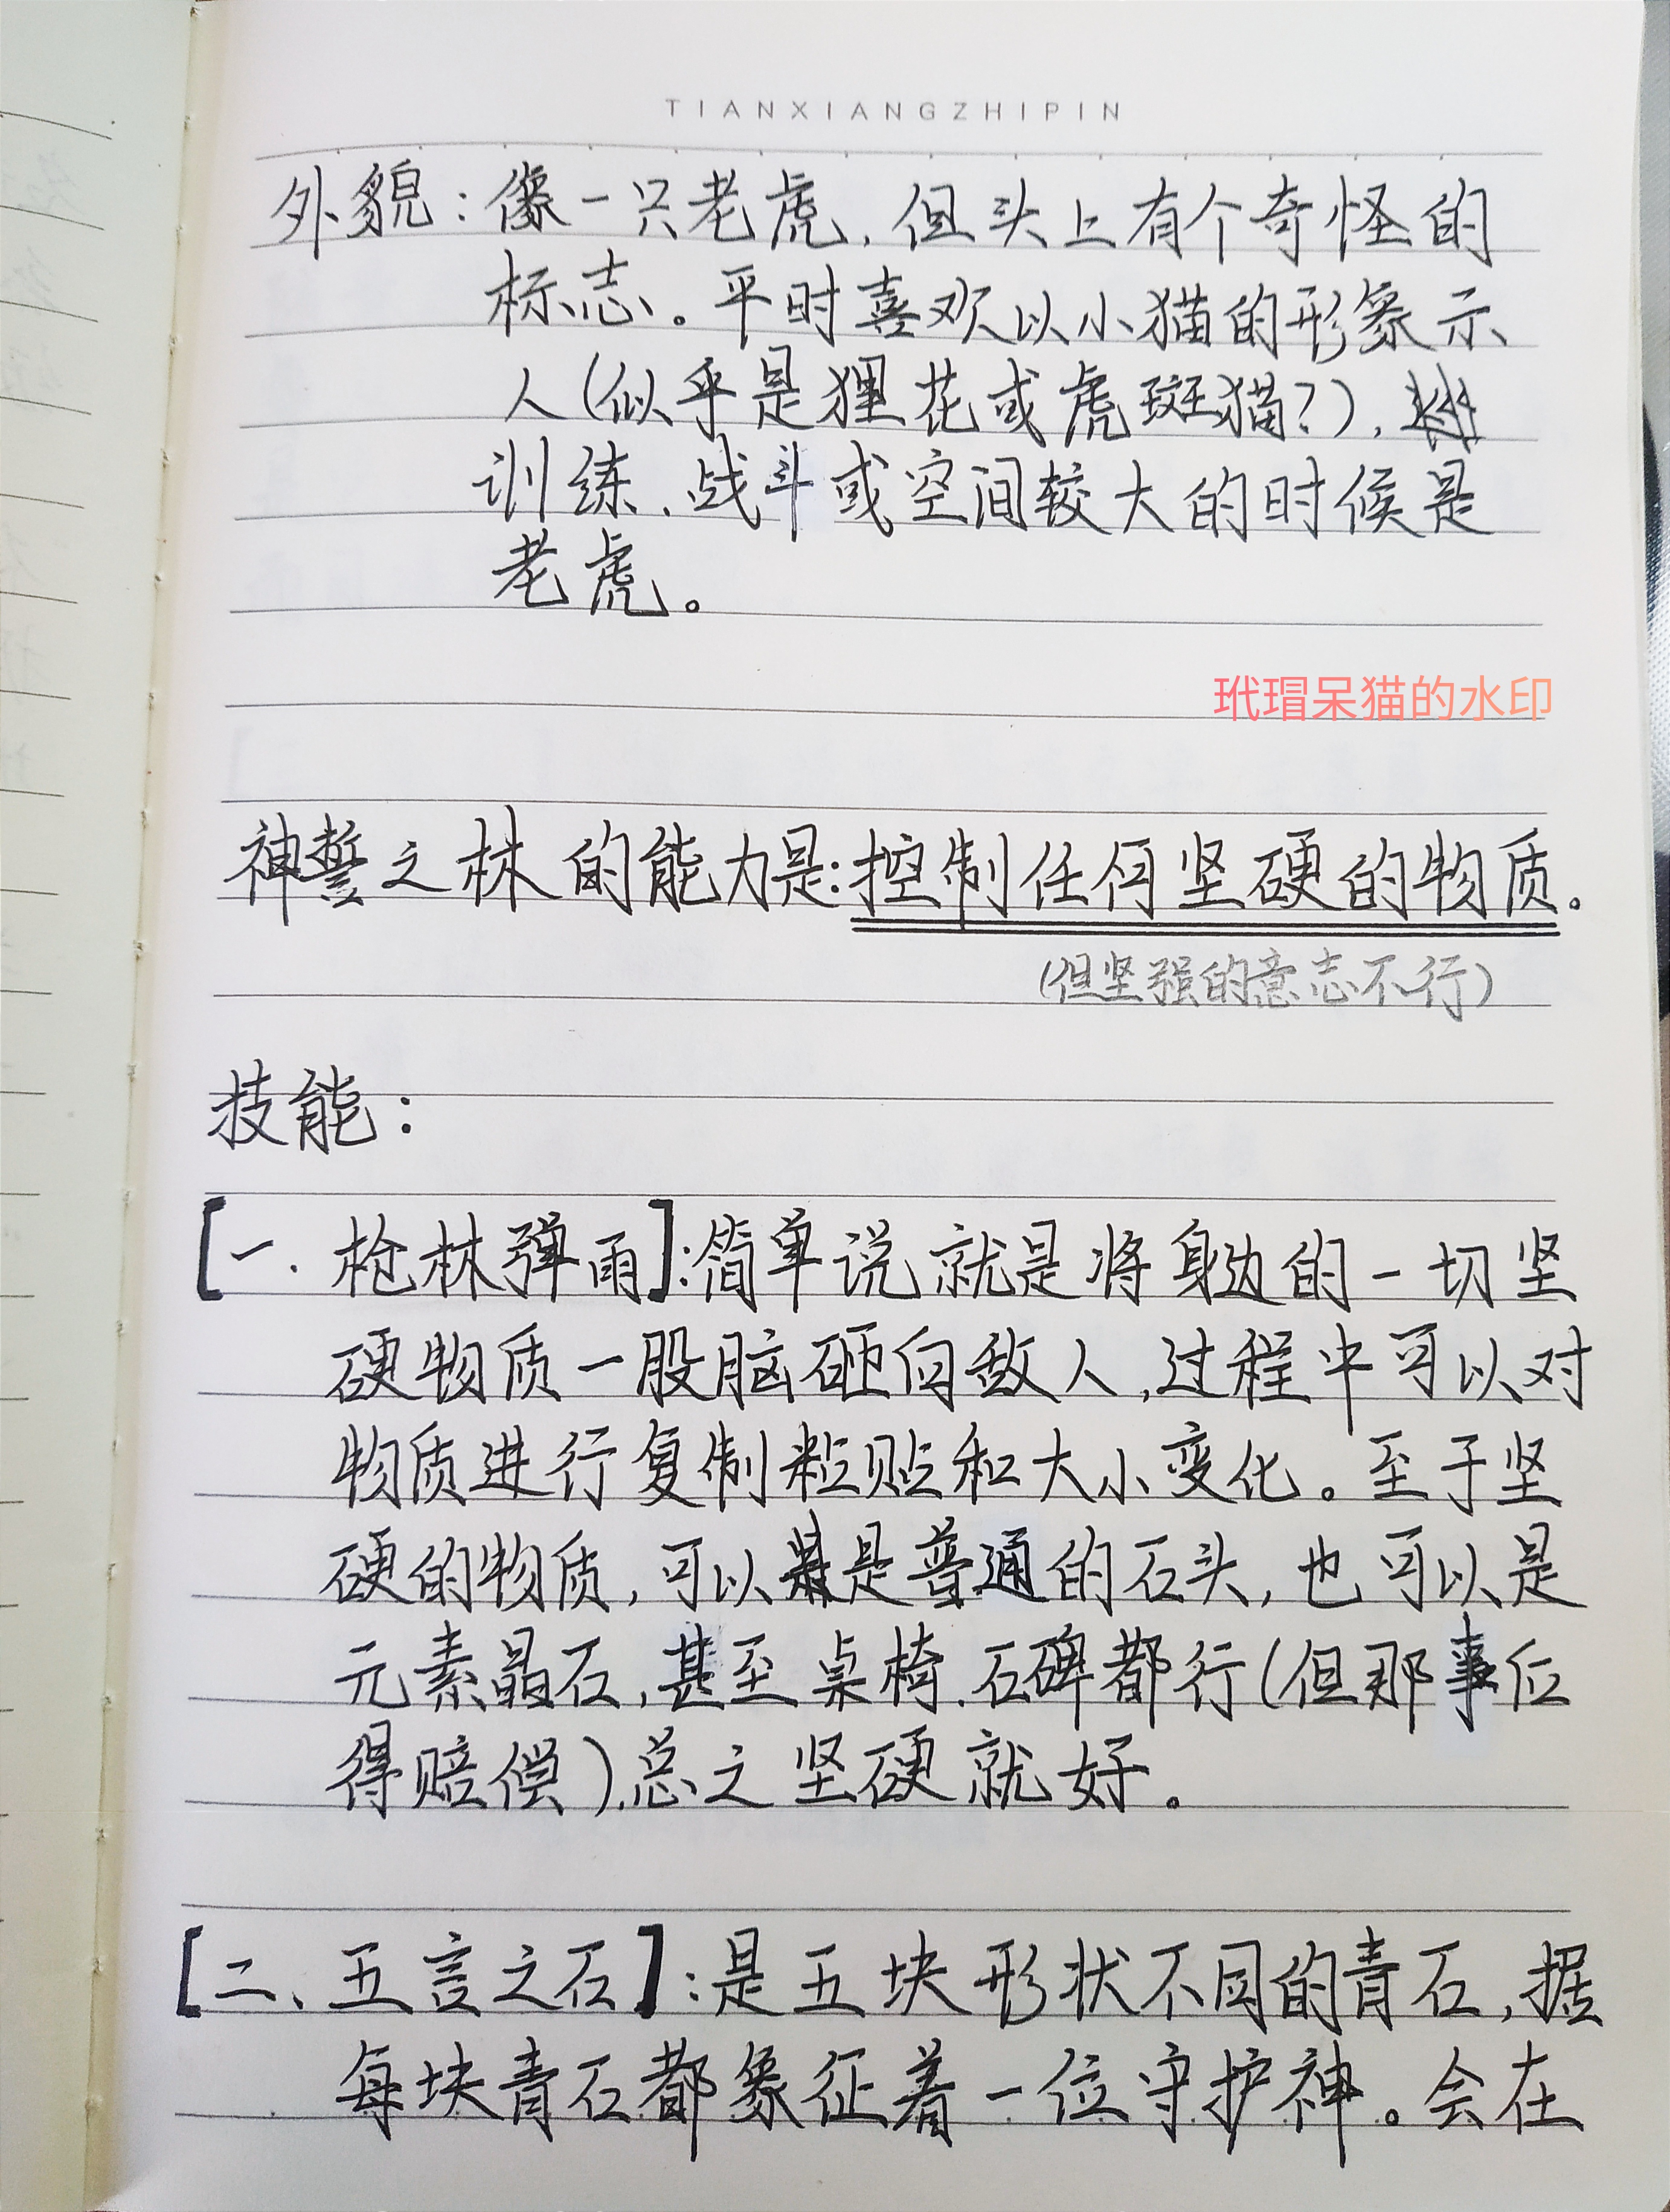 TIANXIANGZHIPIN
外貌：像一只老虎，但头上有个奇怪的
标志。平时喜欢以小猫的形象示
人（似乎是狸花或虎斑猫？），
训练、战斗或空间较大的时候是
老虎。
玳瑁呆猫的水印
神誓之林的能力是：控制任何坚硬的物质。
（但坚强的意志不行）
技能：
[一、枪林弹雨]：简单说就是将身边的一切坚
硬物质一股脑砸向敌人，过程中可以对
物质进行复制粘贴和大小变化。至于坚
硬的物质，可以是普通的石头，也可以是
元素晶石，甚至桌椅、石碑都行（但那事后
得赔偿），总之坚硬就好。
[二、五言之石]：是五块形状不同的青石，据
每块青石都象征着一位守护神。会在